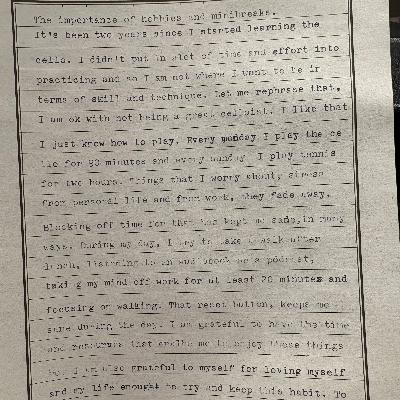 The importance of hobbies and minibreaks.
It's been two years since I started learning the
cello. I didn't put in alot of time and effort into
practicing and so I am not where I want to be in
terms of skill and technique. Let me rephrase that,
I am ok with not being a great cellist. I like that
I just know how to play. Every monday I play the ce
llo for 90 minutes and every sunday I play tennis
for two hours. Things that I worry about, stress
from personal life and from work, they fade away.
Blocking off time for that has kept me sane, in many
ways. During my day, I try to take a walk after
lunch, listening to an audiobook or a podcast,
taking my mind off work for at least 20 minutes and
focusing on walking. That reset button, keeps me
sane during the day. I am grateful to have the time
and resources that enable me to enjoy these things
but I am also grateful to myself for loving myself
and my life enough to try and keep this habit. To